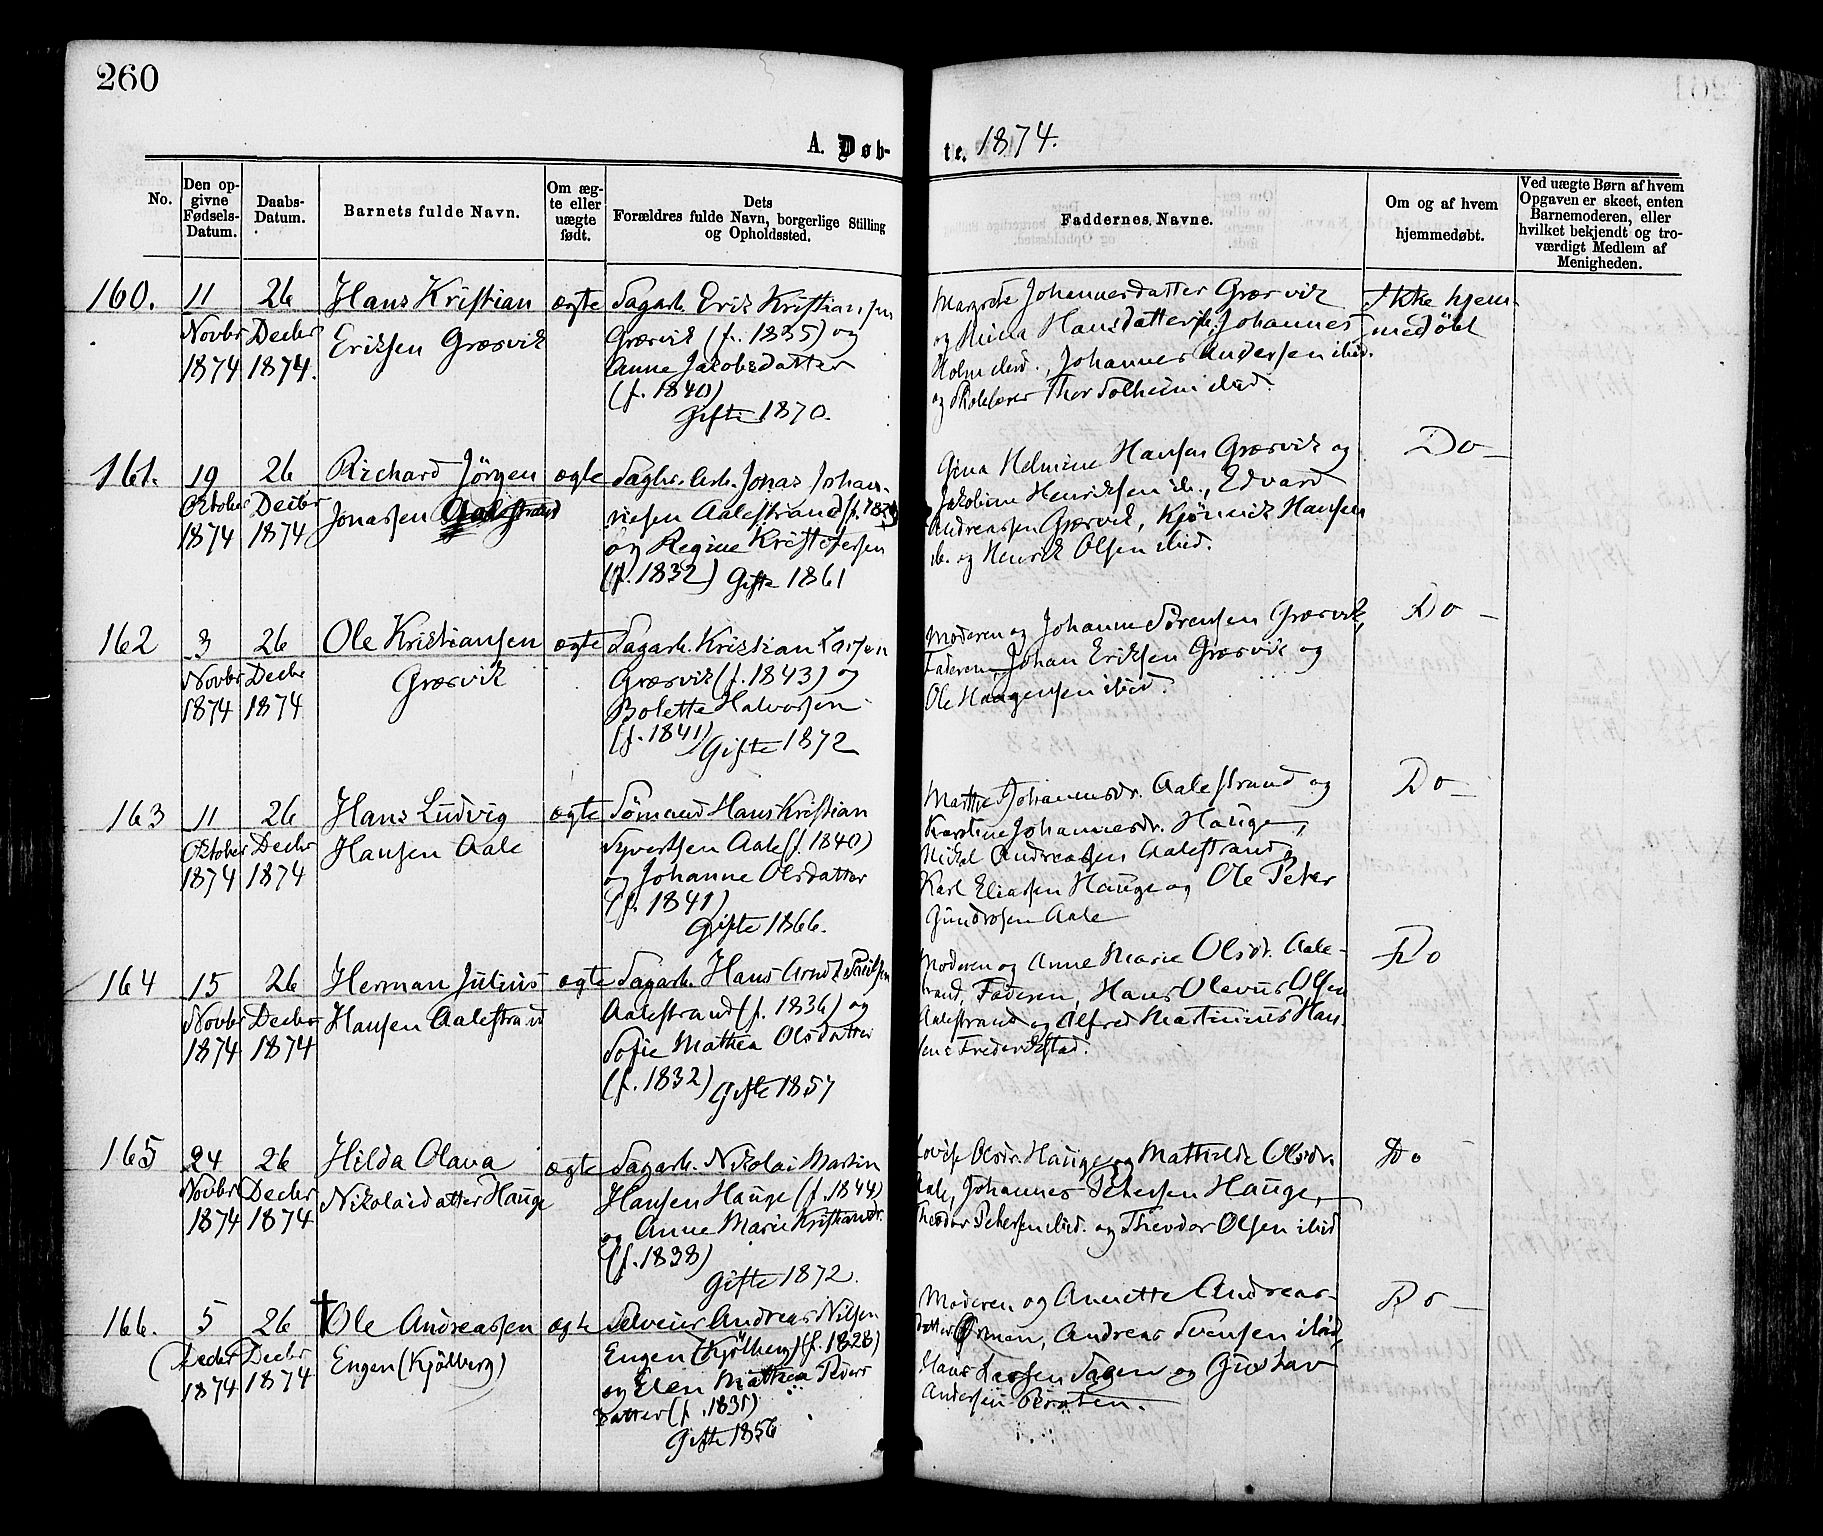 260
A. Døb-
te. 1874.
No.
Den op-
givne
Fødsels-
Datum.
Daabs-
Datum.
Barnets fulde Navn.
Om æg-
te eller
uægte
født.
Dets
Forældres fulde Navn, borgerlige Stilling
og Opholdssted.
Faddernes Navne.
Om og af hvem
hjemmedøbt.
Ved uægte Børn af hvem
Opgaven er skeet, enten
Barnemoderen, eller
hvilket bekjendt og tro-
værdigt Medlem af
Menigheden.
160.
11
Novbr
1874
26
Decbr
1874.
Hans Kristian
Eriksen Græsvik
ægte
Sagarb. Erik Kristiansen
Græsvik (f. 1835) og
Anne Jakobsdatter
(f. 1840)
Gifte 1870.
Margrete Johannesdatter Græsvik
og Hansdatter Johannes
Holm ibid., Johannes Andersen ibid.
og Skolelærer Thor Solheim ibid.
Ikke hjem-
medøbt
161.
19
Oktober
1874
26
Decbr
1874
Richard Jörgen
Jonassen Aalestrand
ægte
Sagbr. Arb. Jonas Johan-
nesen Aalestrand
og Regine Kristofersen
(f. 1832) Gifte 1861
Gina Helmine Hansen Græsvik og
Jakobine Henriksen ib., Edvard
Andreassen Græsvik, Hansen
ib. og Henrik Olsen ibid.
Do
162
3
Novbr
1874
26
Decbr
1874
Ole Kristiansen
Græsvik
ægte
Sagarb. Kristian Larsen
Græsvik (f. 1843) og
Bolette Halvorsen
(f. 1841) Gifte 1872
Moderen og Johanne Sörensen Græsvik,
Faderen, Johan Eriksen Græsvik og
Ole Haagensen ibid.
Do
163
11
Oktober
1874
26
Decbr
1874
Hans Ludvig
Hansen Aale
ægte
Sömand Hans Kristian
Syvertsen Aale (f. 1840)
og Johanne Olsdatter
(f. 1841)
Gifte 1866.
Marthe Johannesdr. Aalestrand og
Karoline Johannesdr. Hauge,
Nikol Andreassen Aalestrand,
Karl Eliassen Hauge og Ole Peter
Gundrosen Aale
Do
164
15
Novbr
1874
26
Decbr
1874
Herman Julius
Hansen Aalestrand
ægte
Sagarb. Hans Arndt
Aalestrand (f. 1836) og
Sofie Mathea Olsdatter
(f. 1832) Gifte 1857
Moderen og Anne Marie Olsdr. Aale-
strand, Faderen, Hans Olavus Olsen
Aalestrand og Alfred Martinius Han-
sen Frederikstad.
Do
165
24
Novbr
1874
26
Decbr
1874
Hilda Olava
Nikolaidatter Hauge
ægte
Sagarb. Nikolai Martin
Hansen Hauge (f. 1844)
og Anne Marie Kristiansdr.
(f. 1838)
Gifte 1872.
Lovise Olsdr. Hauge og Mathilde Olsdr.
Aale, Johannes Petersen Hauge,
Theodor Petersen ibid. og Theodor Olsen ibid
Do
166.
5
Decbr
1874
26
Decbr
1874
† Ole Andreassen
Engen (Kjölberg)
ægte
Selveier Andreas Nilsen
Engen (Kjölberg) (f. 1828)
og Elen Mathea Peders
datter (f. 1831)
Gifte 1856
Moderen og Annette Andreas-
datter Örmen, Andreas Svensen ibid,
Hans Larsen Sagen og Gustav
Andersen Bråten.
Do